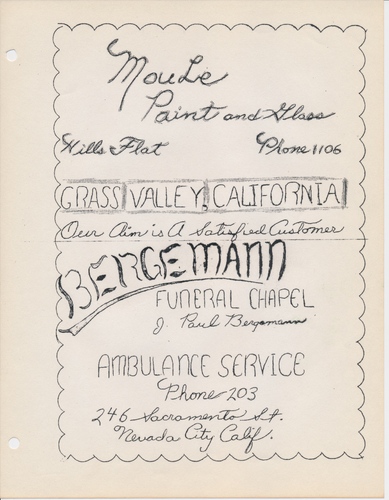 Moule
Paint and Glass
Hills Flat Phone 1106
GRASS VALLEY, CALIFORNIA
Our Aim is A Satisfied Customer
BERGEMANN
FUNERAL CHAPEL
J. Paul Bergemann
AMBULANCE SERVICE
Phone 203
246 Sacramento St.
Nevada City Calif.